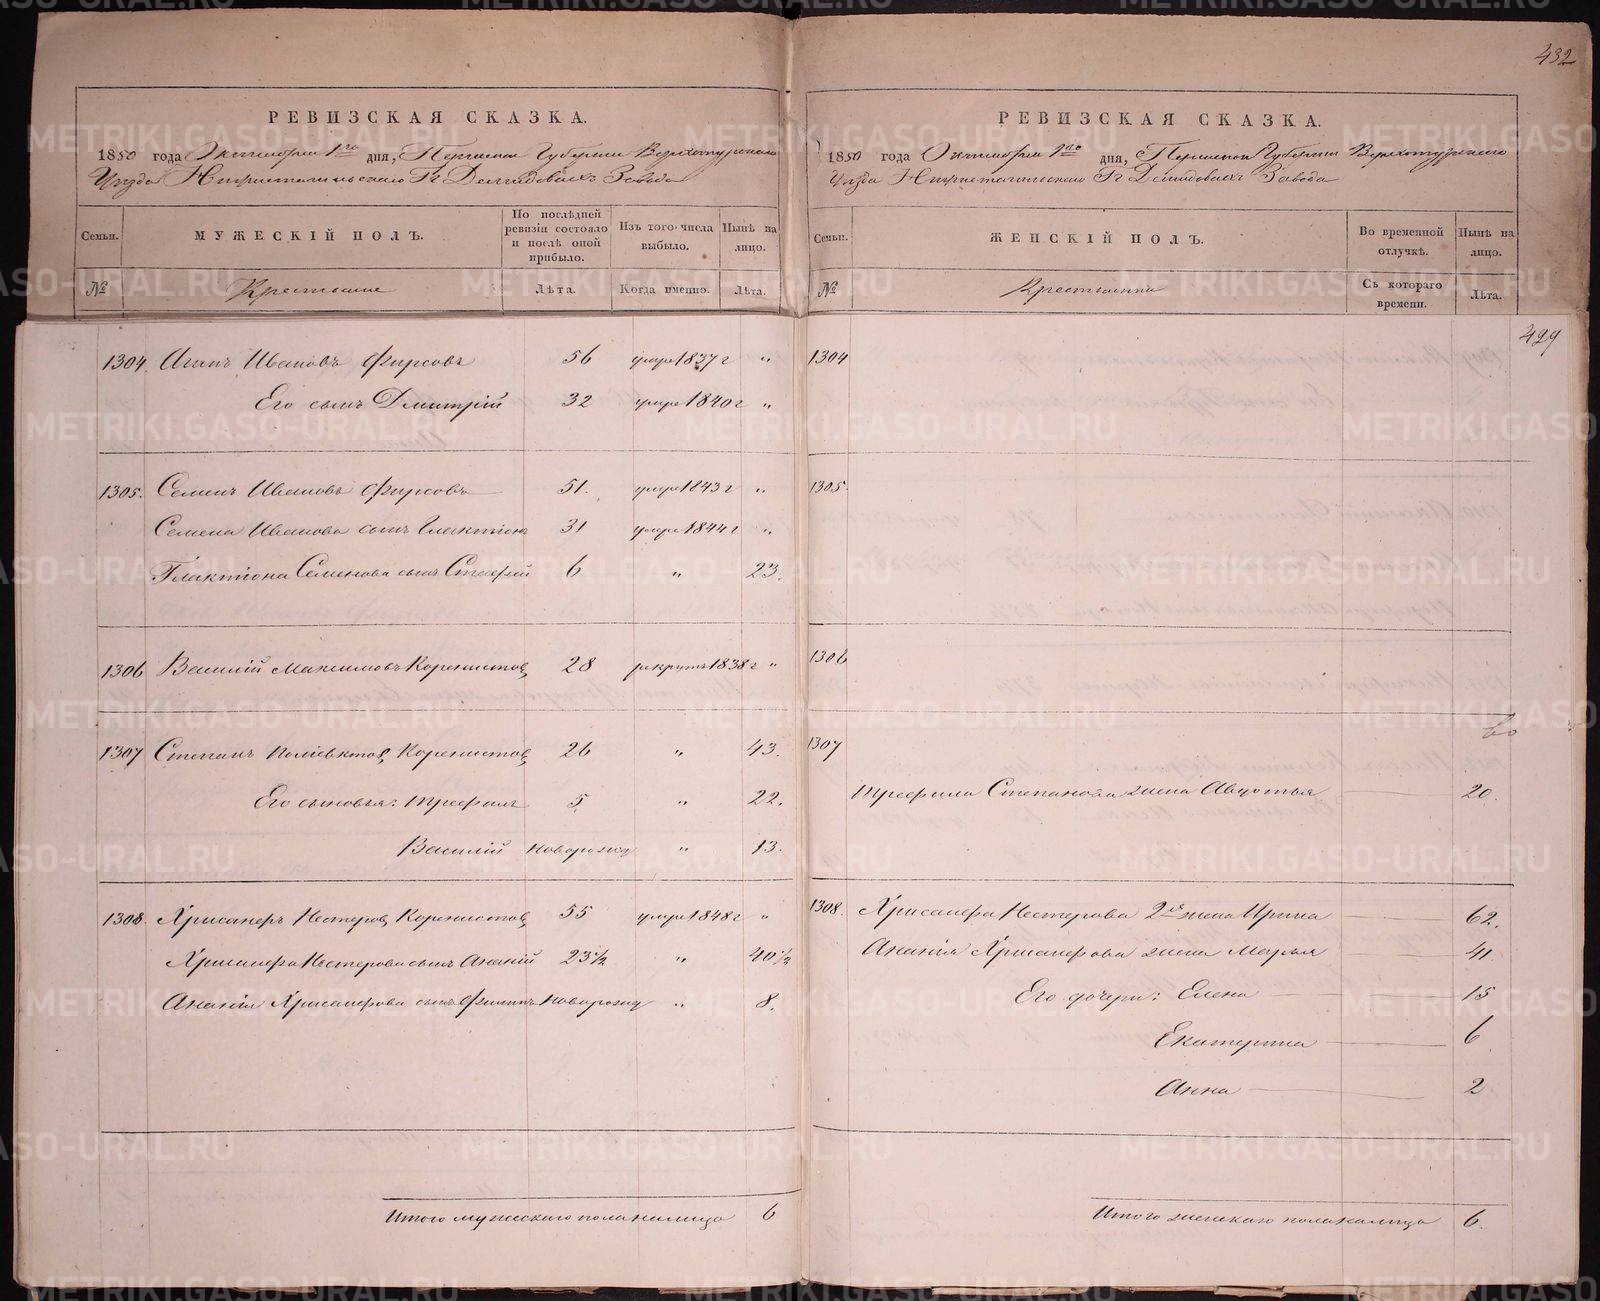 432
РЕВИЗСКАЯ СКАЗКА.
1850 года Октября 1го дня, Пермской Губерніи Верхотурскаго
Уѣзда Нижнетагильскаго Гг Демидовыхъ Завода
Семьи.
МУЖЕСКІЙ ПОЛЪ.
По послѣдней ревизіи состояло и послѣ оной прибыло.
Изъ того числа выбыло.
Нынѣ на лицо.
№
Крестьяне
Лѣта.
Когда именно.
Лѣта.
1304. Иванов Фирсовъ 56 умре 1837 г "
Его сынъ Дмитрій 32 умре 1840 г "
1305. Семенъ Ивановъ Фирсовъ 51. умре 1843 г "
Семена Иванова сынъ Галактіонъ 31 умре 1844 г "
Галактіона Семенова сынъ 6 " 23.
1306 Василій Максимовъ Коренистов 28 рекрутъ 1838 г "
1307 Степанъ Поліевктов Коренистов 26 " 43.
Его сыновья: Трефилъ 5 " 22.
Василій новорожд " 13.
1308. Хрисанфъ Нестеров Коренистов 55 умре 1848 г "
Хрисанфа Нестерова сынъ Ананій 23½ " 40½
Ананія Хрисанфова сынъ Филипъ новорожд " 8.
Итого мужескаго пола налицо 6
РЕВИЗСКАЯ СКАЗКА.
1850 года Октября 1го дня, Пермской Губерніи Верхотурскаго
Уѣзда Нижнетагильскаго Гг Демидовыхъ Завода
Семьи.
ЖЕНСКІЙ ПОЛЪ.
Во временной отлучкѣ.
Нынѣ на лицо.
№
Крестьянки
Съ котораго времени.
Лѣта.
429
1304
1305.
1306
1307
Трефила Степанова жена Авдотья 20.
1308. Хрисанфа Нестерова 2я жена Ирина 62.
Ананія Хрисанфова жена Марья 41
Его дочери: Елена 15
Екатерина 6
Анна 2
Итого женскаго пола налицо 6.
METRIKI.GASO-URAL.RU